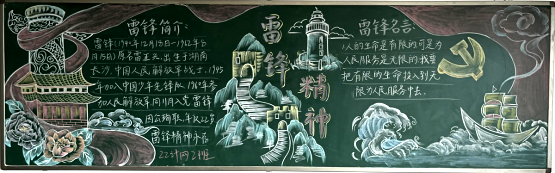 雷锋简介:
雷锋(1940年12月18日-1962年8
月15日)原名雷正兴,出生于湖南
长沙,中国人民解放军战士,1945
年加入中国少年先锋队 1960年参
加人民解放军同年11月入党 雷锋
因公殉职,年仅22岁
雷锋精神永存
22计网2班
雷锋精神
雷锋名言:
人的生命是有限的可是为
人民服务是无限的我要
把有限的生命投入到无
限为人民服务中去。